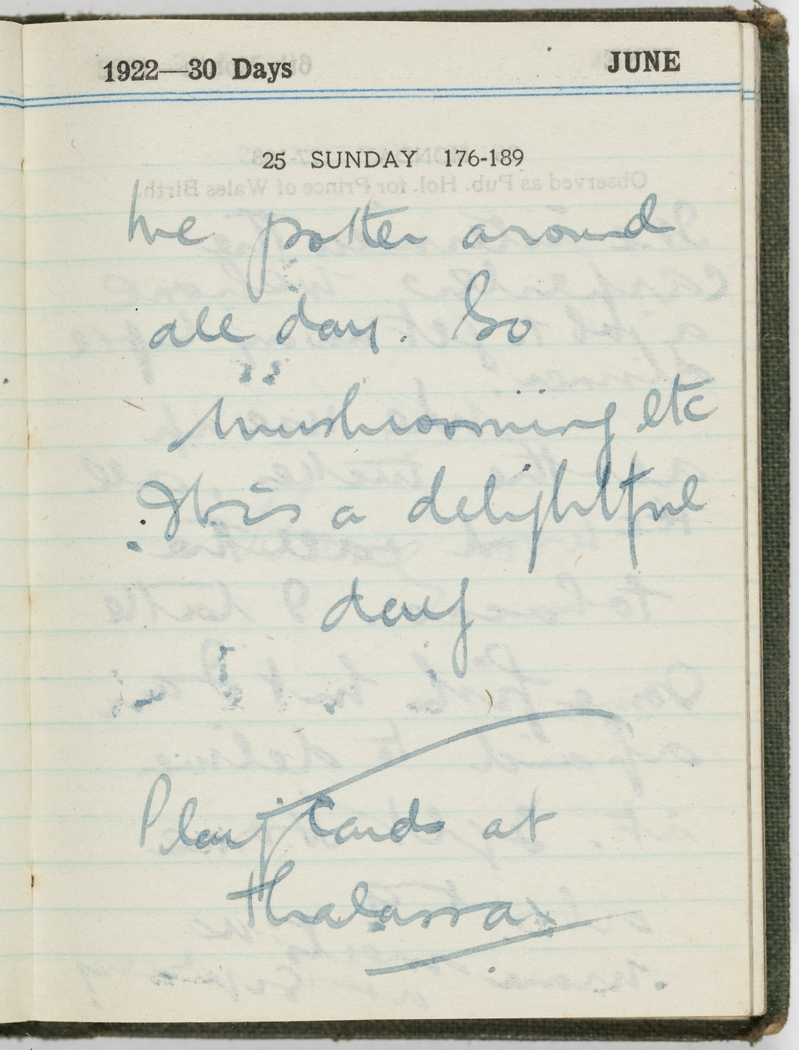 1922—30 Days JUNE
25 SUNDAY 176-189
We potter around
all day. Go
mushrooming etc
It is a delightful
day
Play Cards at
Thalassa